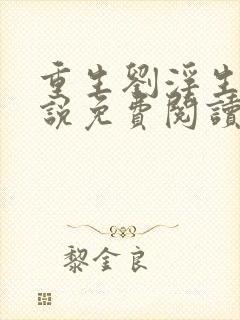 重生劉淫生
說免費閱讀
黎金良